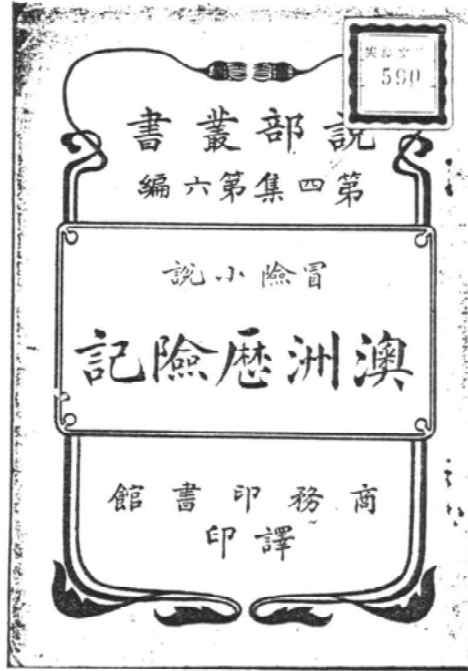 590
說部叢書
第四集第六編
冒險小說
澳洲歷險記
商務印書館
譯印